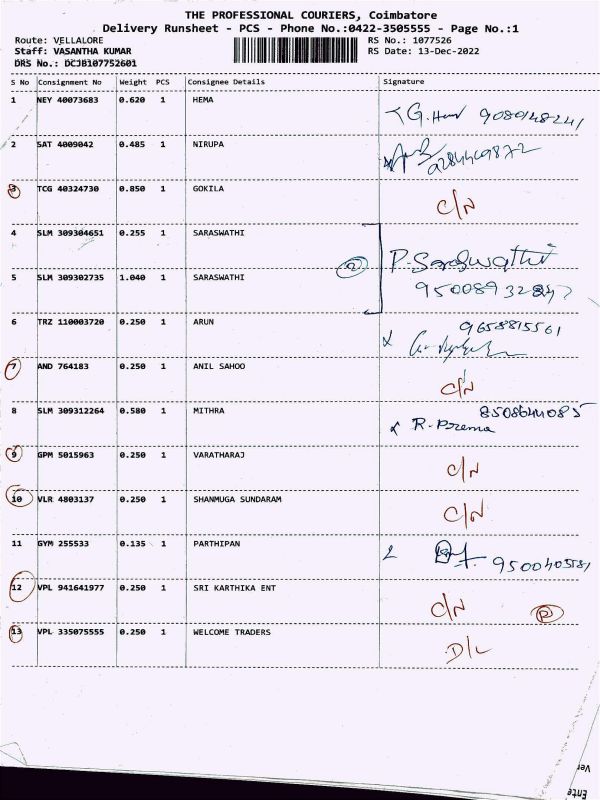 THE PROFESSIONAL COURIERS, Coimbatore
Delivery Runsheet - PCS - Phone No.:0422-3505555 - Page No.:1
Route: VELLALORE RS No.: 1077526
Staff: VASANTHA KUMAR RS Date: 13-Dec-2022
DRS No.: DCJB107752601
S No Consignment No Weight PCS Consignee Details Signature
1 NEY 40073683 0.620 1 HEMA G. 9089148241
2 SAT 4009042 0.485 1 NIRUPA 9284469872
3 TCG 40324730 0.850 1 GOKILA C/N
4 SLM 309304651 0.255 1 SARASWATHI
2 P. Saraswathi
5 SLM 309302735 1.040 1 SARASWATHI
6 TRZ 110003720 0.250 1 ARUN 9658815561
7 AND 764183 0.250 1 ANIL SAHOO C/N
8 SLM 309312264 0.580 1 MITHRA 8508644085
R. Prema
9 GPM 5015963 0.250 1 VARATHARAJ C/N
10 VLR 4803137 0.250 1 SHANMUGA SUNDARAM C/N
11 GYM 255533 0.135 1 PARTHIPAN
12 VPL 941641977 0.250 1 SRI KARTHIKA ENT C/N P
13 VPL 335075555 0.250 1 WELCOME TRADERS D/L
Ver
Ente